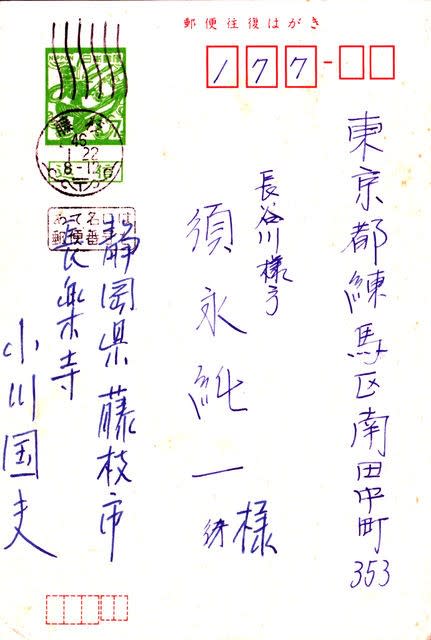 郵便往復はがき
177-
NIPPON
7
46
1 22
8-12
東京都練馬区南田中町353
長谷川様方
須永純一 様
あて名には
郵便番
静岡県藤枝市
長楽寺
小川国夫